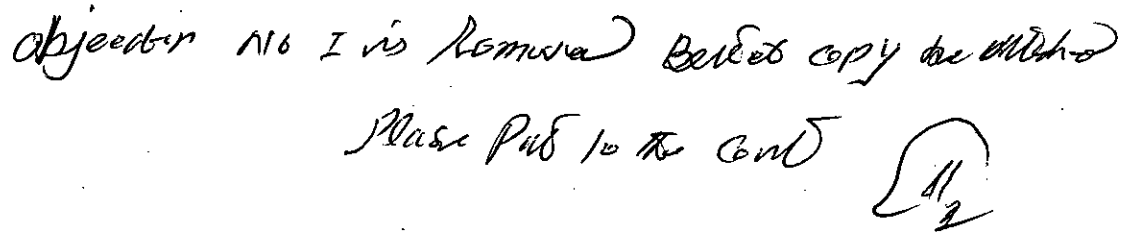 objection No I is removed Better copy be attached
Please Put to the Court